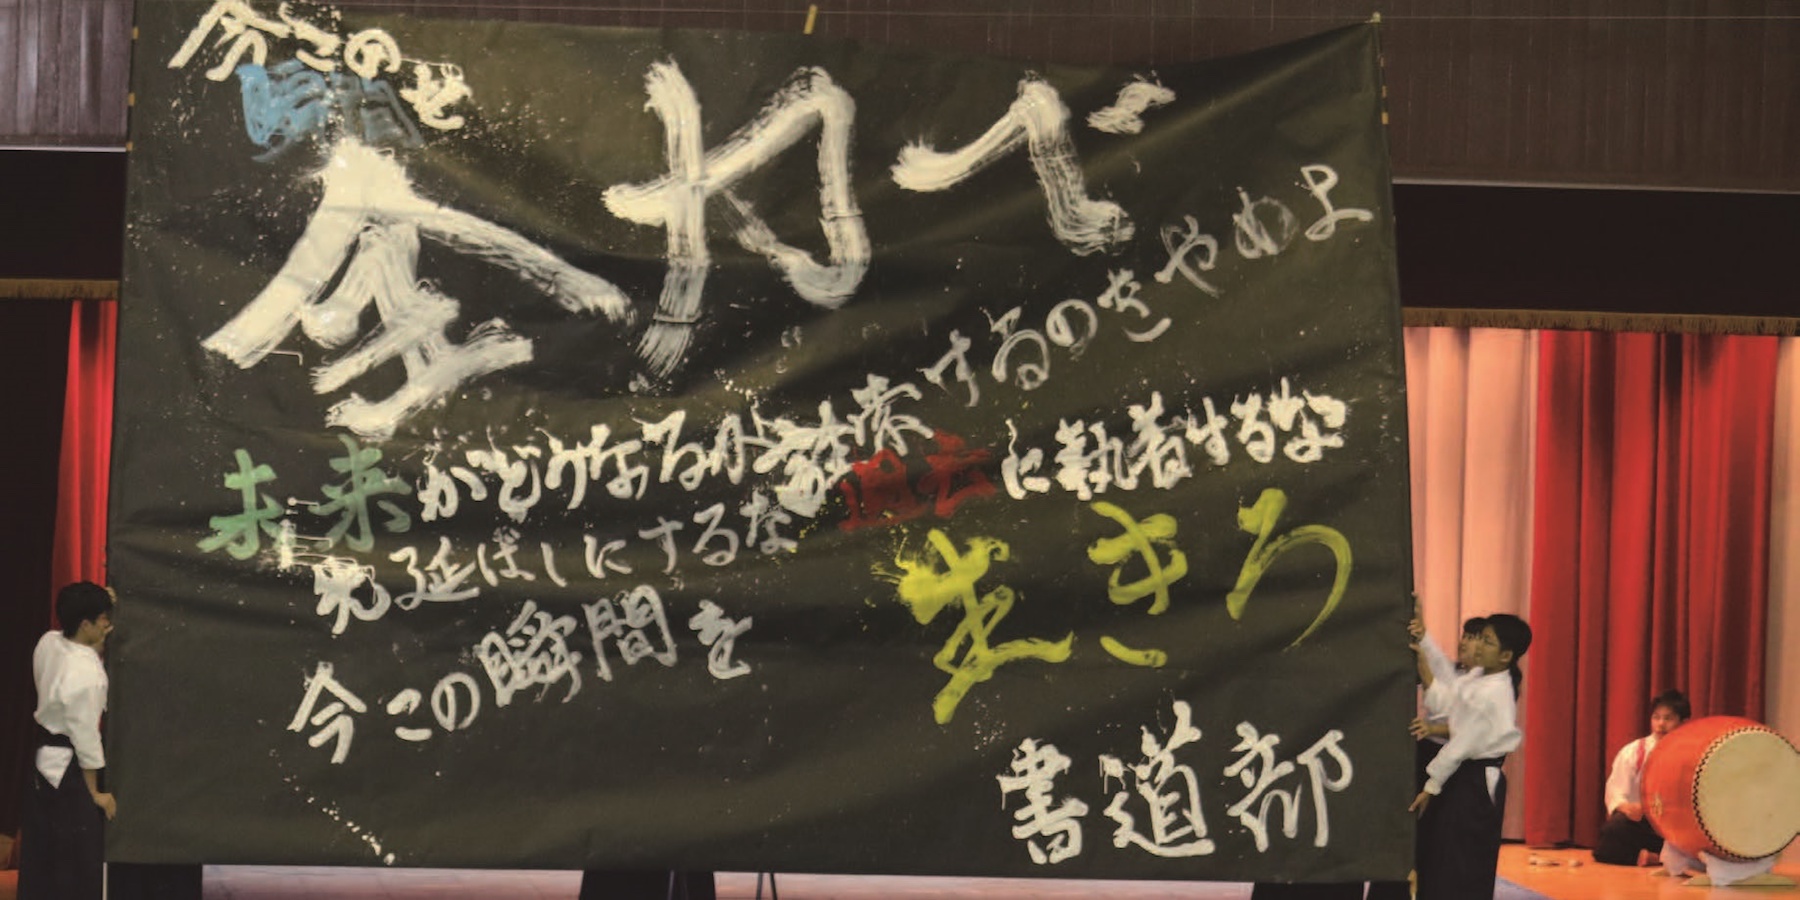 今この
全力で
未来がどうなるか詮索するのをやめよ
過去に執着するな
先延ばしにするな
今この瞬間を
生きろ
書道部